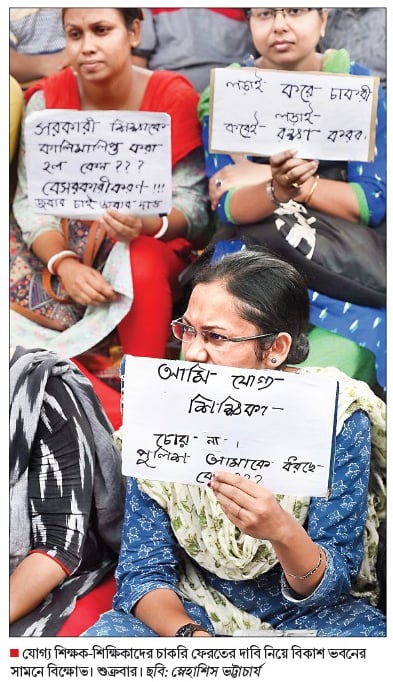 সরকারী শিক্ষাকে
কালিমালিপ্ত করা
হল কেন???
বেসরকারীকরণ!!!
জবাব চাই জবাব দাও
লড়াই করে চাকরী
লড়াই-
করেই- রক্ষা করব।
আমি যোগ্য
শিক্ষিকা
চোর না।
পুলিশ আমাকে ধরছে
কেন???
■ যোগ্য শিক্ষক-শিক্ষিকাদের চাকরি ফেরতের দাবি নিয়ে বিকাশ ভবনের
সামনে বিক্ষোভ। শুক্রবার। ছবি: স্নেহাশিস ভট্টাচার্য